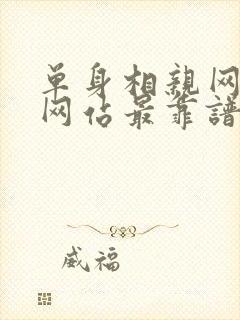 单身相親网
网佔最靠譜
威福